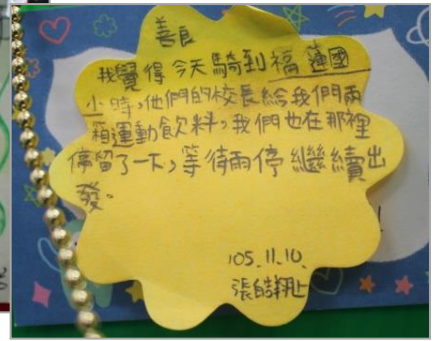 善良
我覺得今天騎到福蓮國
小時,他們的校長給我們兩
箱運動飲料,我們也在那裡
停留了一下,等待雨停繼續出
發。
105.11.10.
張皓翔